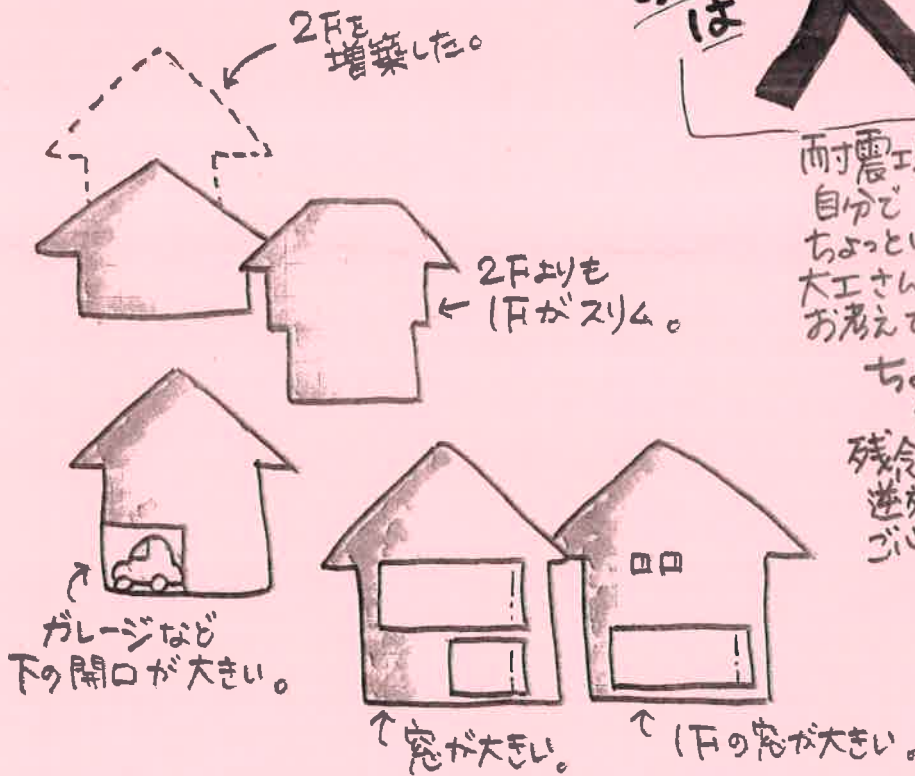 2Fを
増築した。
は
2Fよりも
1Fがスリム。
ガレージなど
下の開口が大きい。
窓が大きい。
1Fの窓が大きい。
耐震工
自分で
ちょっとい
大工さん
お考えで
ちょ
残念
逆効
ご心